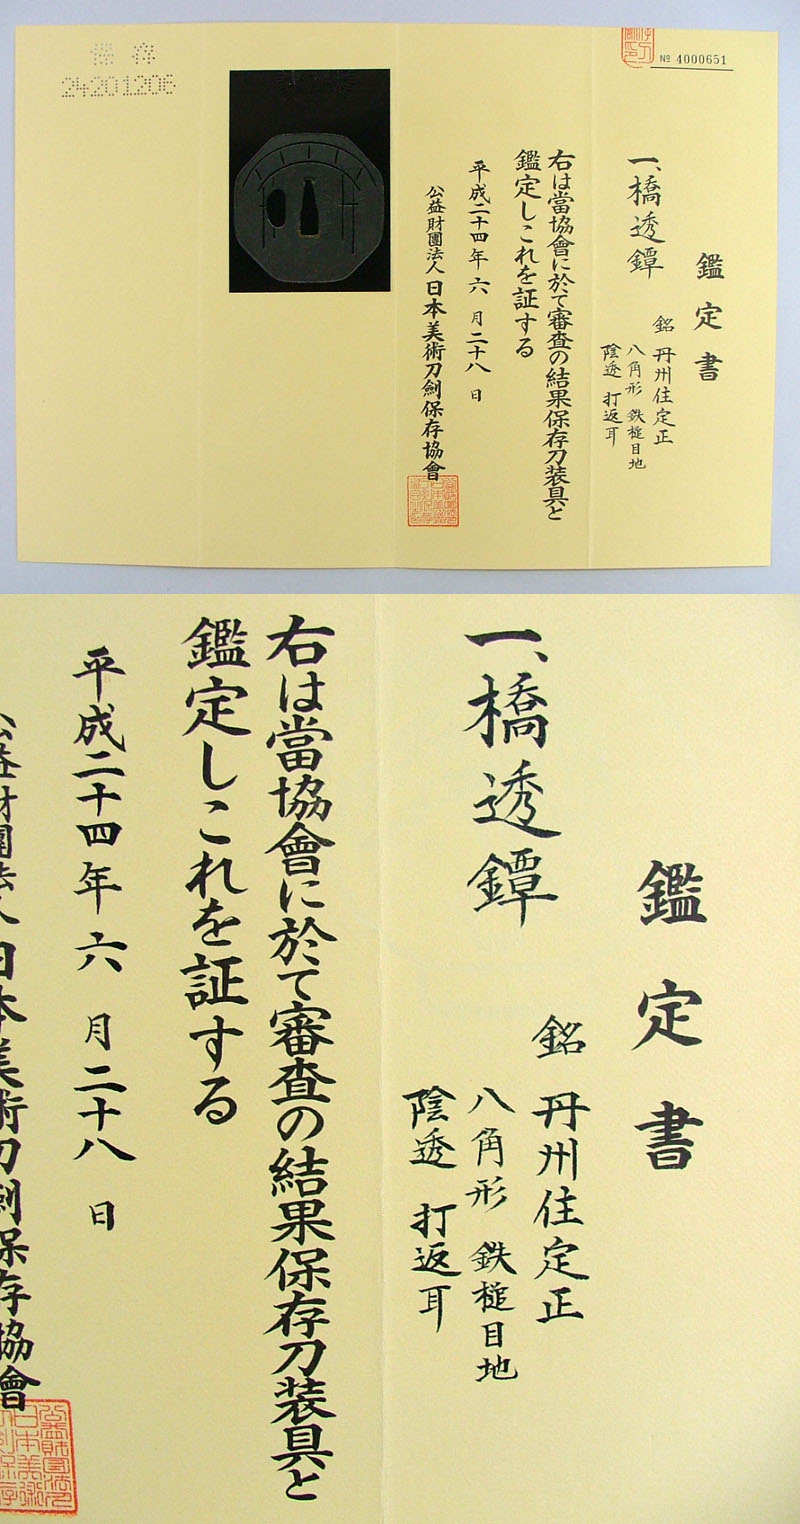 保存
24201206
№ 4000651
鑑定書
一、橋透鐔
銘 丹州住定正
八角形 鉄槌目地
陰透 打返耳
右は當協會に於て審査の結果保存刀装具と
鑑定しこれを証する
平成二十四年六月二十八日
公益財團法人日本美術刀劍保存協會
鑑定書
一、橋透鐔
銘 丹州住定正
八角形 鉄槌目地
陰透 打返耳
右は當協會に於て審査の結果保存刀装具と
鑑定しこれを証する
平成二十四年六月二十八日
公益財團法人日本美術刀劍保存協會